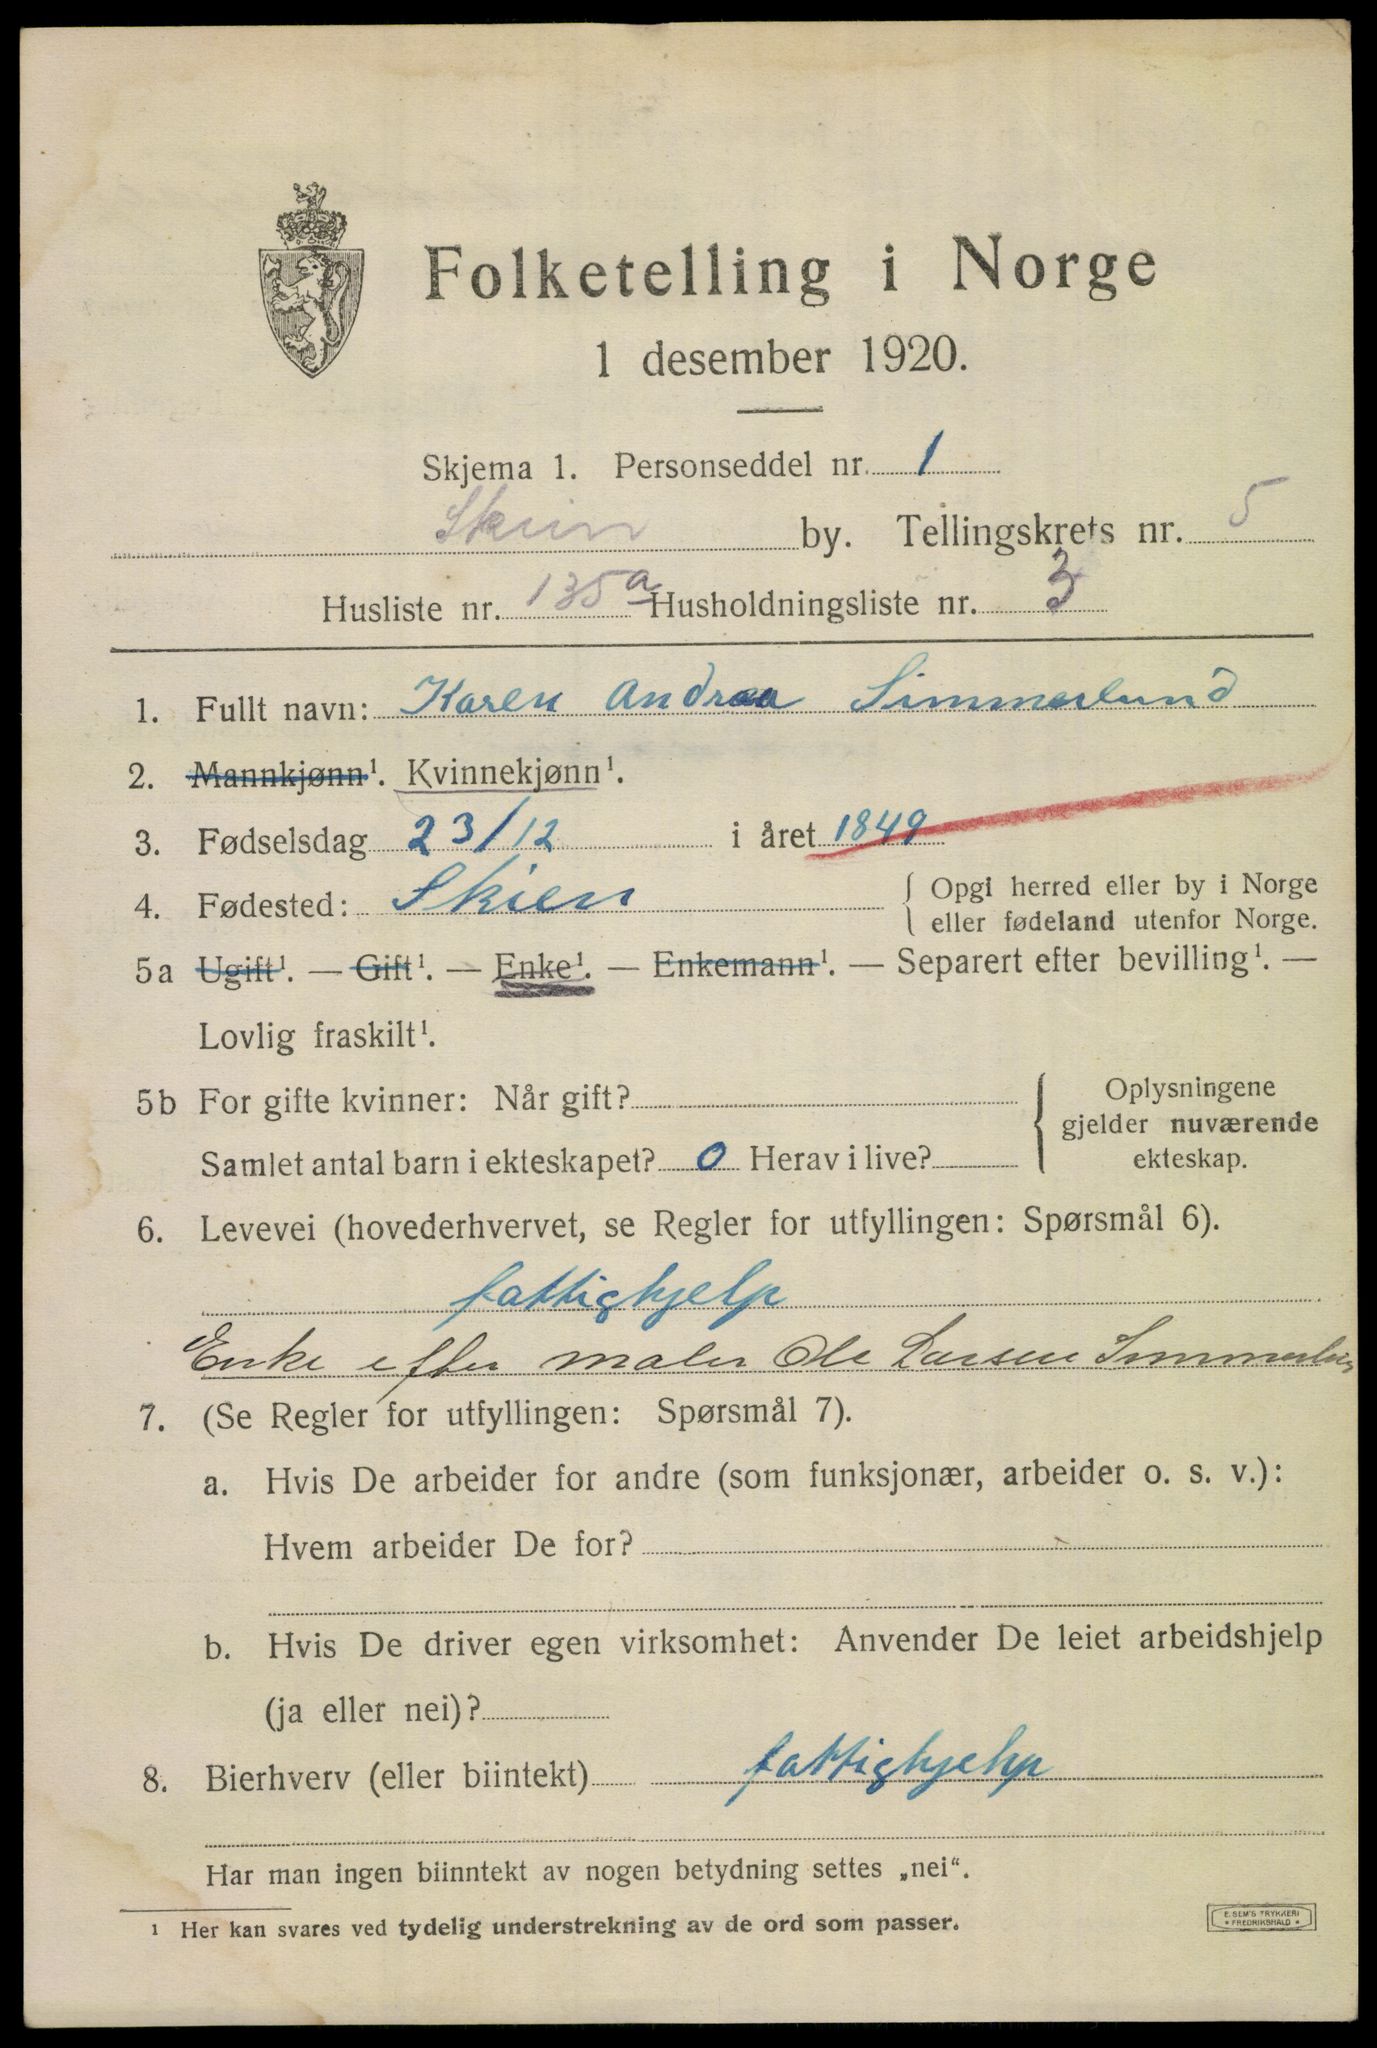 Folketelling i Norge
1 desember 1920.
Skjema 1. Personseddel nr. 1
Skien by. Tellingskrets nr. 5
Husliste nr. 135a Husholdningsliste nr. 3
1. Fullt navn: Karen Andrea Simmerlund
2. Mannkjønn¹. Kvinnekjønn¹.
3. Fødselsdag 23/12 i året 1849
4. Fødested: Skien { Opgi herred eller by i Norge
eller fødeland utenfor Norge.
5a Ugift¹. — Gift¹. — Enke¹. — Enkemann¹. — Separert efter bevilling¹. —
Lovlig fraskilt¹.
5b For gifte kvinner: Når gift?
Samlet antal barn i ekteskapet? 0 Herav i live?
{ Oplysningene
gjelder nuværende
ekteskap.
6. Levevei (hovederhvervet, se Regler for utfyllingen: Spørsmål 6).
fattighjelp
Enke efter maler Ole Larsen
7. (Se Regler for utfyllingen: Spørsmål 7).
a. Hvis De arbeider for andre (som funksjonær, arbeider o. s. v.):
Hvem arbeider De for?
b. Hvis De driver egen virksomhet: Anvender De leiet arbeidshjelp
(ja eller nei)?
8. Bierhverv (eller biintekt) fattighjelp
Har man ingen biinntekt av nogen betydning settes „nei“.
¹ Her kan svares ved tydelig understrekning av de ord som passer.
E. SEM'S TRYKKERI
* FREDRIKSHALD *